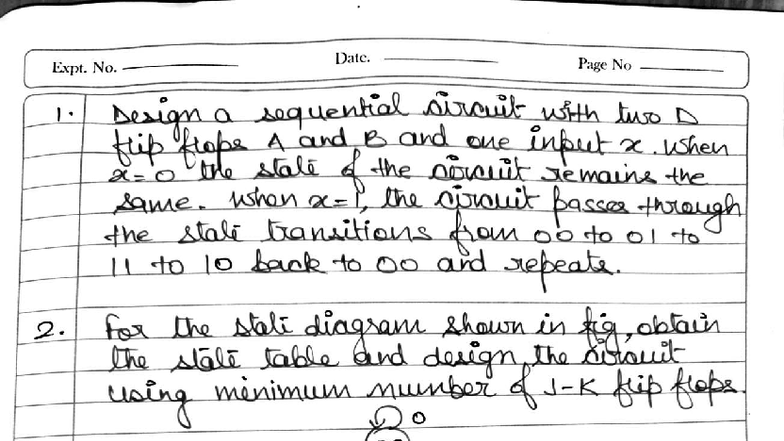 Expt. No.
Date.
Page No
1. Design a sequential circuit with two D
flip flops A and B and one input x. when
x=0 the state of the circuit remains the
same. when x=1, the circuit passes through
the state transitions from 00 to 01 to
11 to 10 back to 00 and repeats.
2. For the state diagram shown in fig, obtain
the state table and design the circuit
using minimum number of J-K flip flops.
0